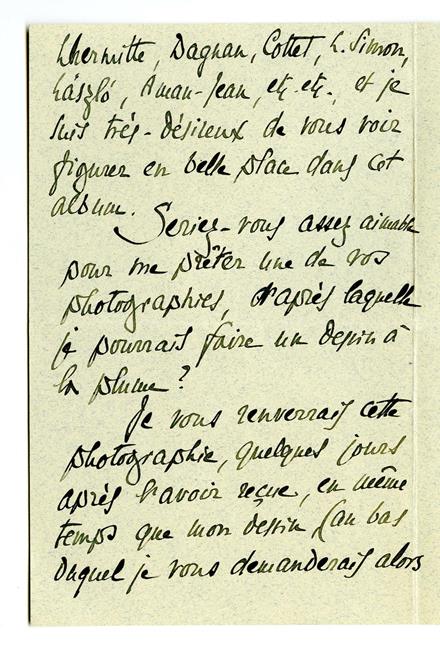 Lhermitte, Dagnan, Cottet, L. Simon,
László, Aman-Jean, etc. etc., et je
suis très-désireux de vous voir
figurer en belle place dans cet
album.
Seriez-vous assez aimable
pour me prêter une de vos
photographies, d'après laquelle
je pourrais faire un dessin à
la plume ?
Je vous renverrais cette
photographie, quelques jours
après l'avoir reçue, en même
temps que mon dessin (au bas
duquel je vous demanderais alors